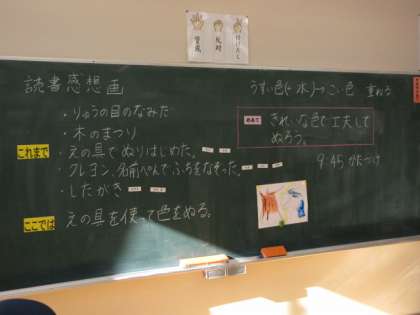 賛成 反対 付けたし
読書感想画
・りゅうの目のなみだ
・木のまつり
これまで
・えの具でぬりはじめた。
・クレヨン、名前ペンでふちをなぞった。
・したがき
ここでは
えの具を使って色をぬる。
うすい色(水)→こい色 重ねる
めあて
きれいな色で工夫して
ぬろう。
9:45 かたづけ